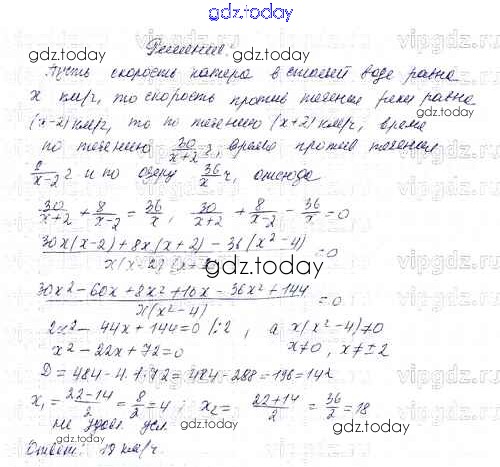 gdz.today
Решение:
Пусть скорость катера в стоячей воде равна
x км/ч, то скорость против течения реки равна
(x-2) км/ч, то по течению (x+2) км/ч, время
по течению 30/(x+2) ч, время против течения
8/(x-2) ч и по озеру 36/x ч, отсюда
30/(x+2) + 8/(x-2) = 36/x, 30/(x+2) + 8/(x-2) - 36/x = 0
(30x(x-2)+8x(x+2)-36(x²-4))/(x(x-2)(x+2)) = 0
(30x²-60x+8x²+16x-36x²+144)/(x(x²-4)) = 0
2x²-44x+144=0 /:2, а x(x²-4)≠0
x²-22x+72=0 x≠0, x≠±2
D=484-4·1·72=484-288=196=14²
x₁=(22-14)/2=8/2=4; x₂=(22+14)/2=36/2=18
не удовл. усл.
Ответ: 18 км/ч.
gdz.today